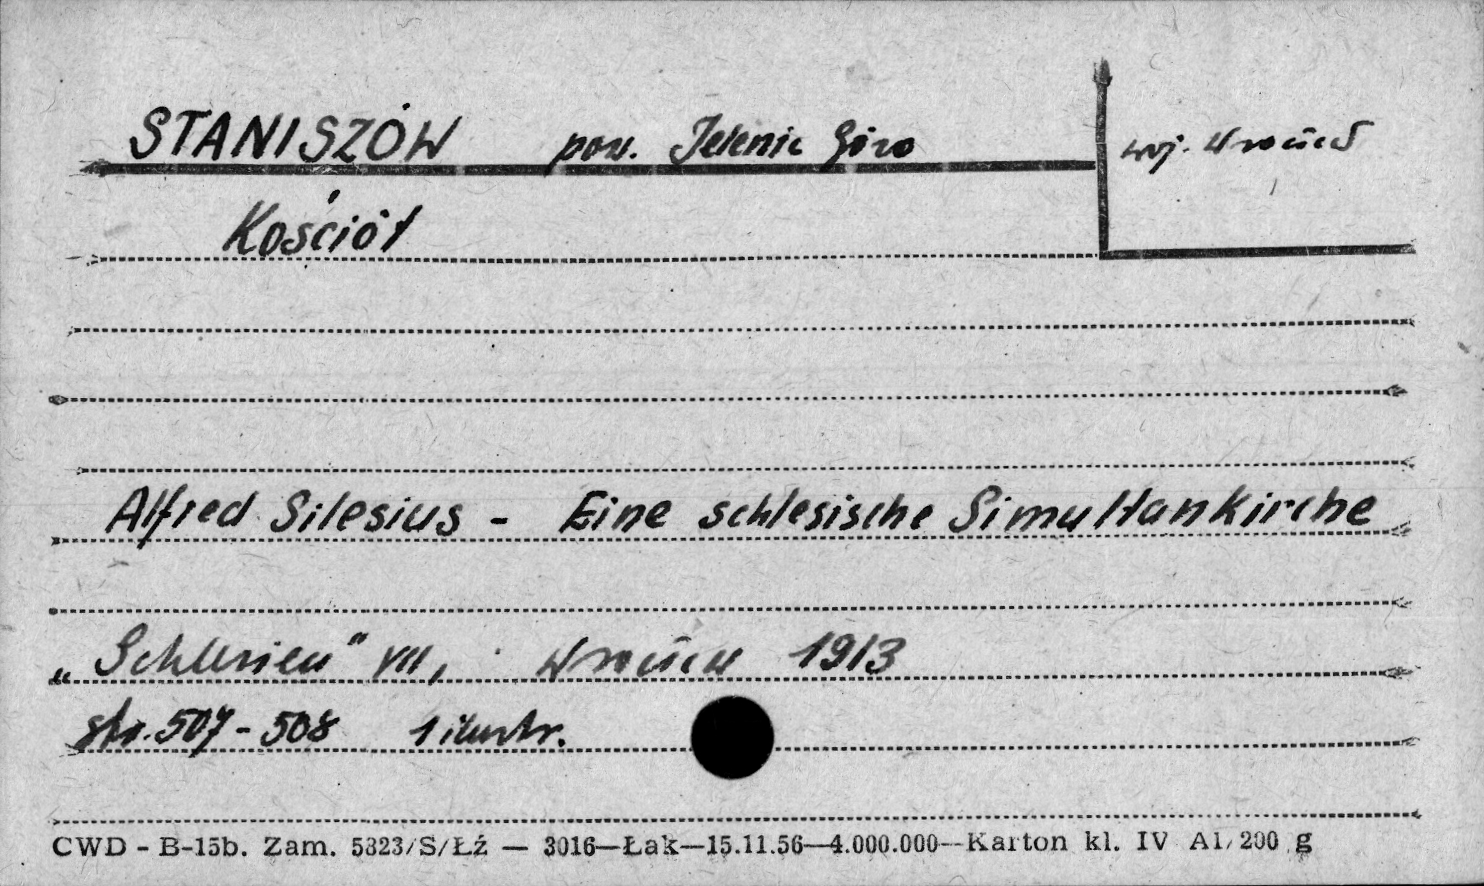 STANISZÓW pow. Jelenia Góra
woj. Wrocław
Kościół
Alfred Silesius - Eine schlesische Simultankirche
„Schlesien" VII, Wrocław 1913
str. 507-508 1 ilustr.
CWD - B-15b. Zam. 5823/S/Łź — 3016—Łak—15.11.56—4.000.000—Karton kl. IV A1/200 g